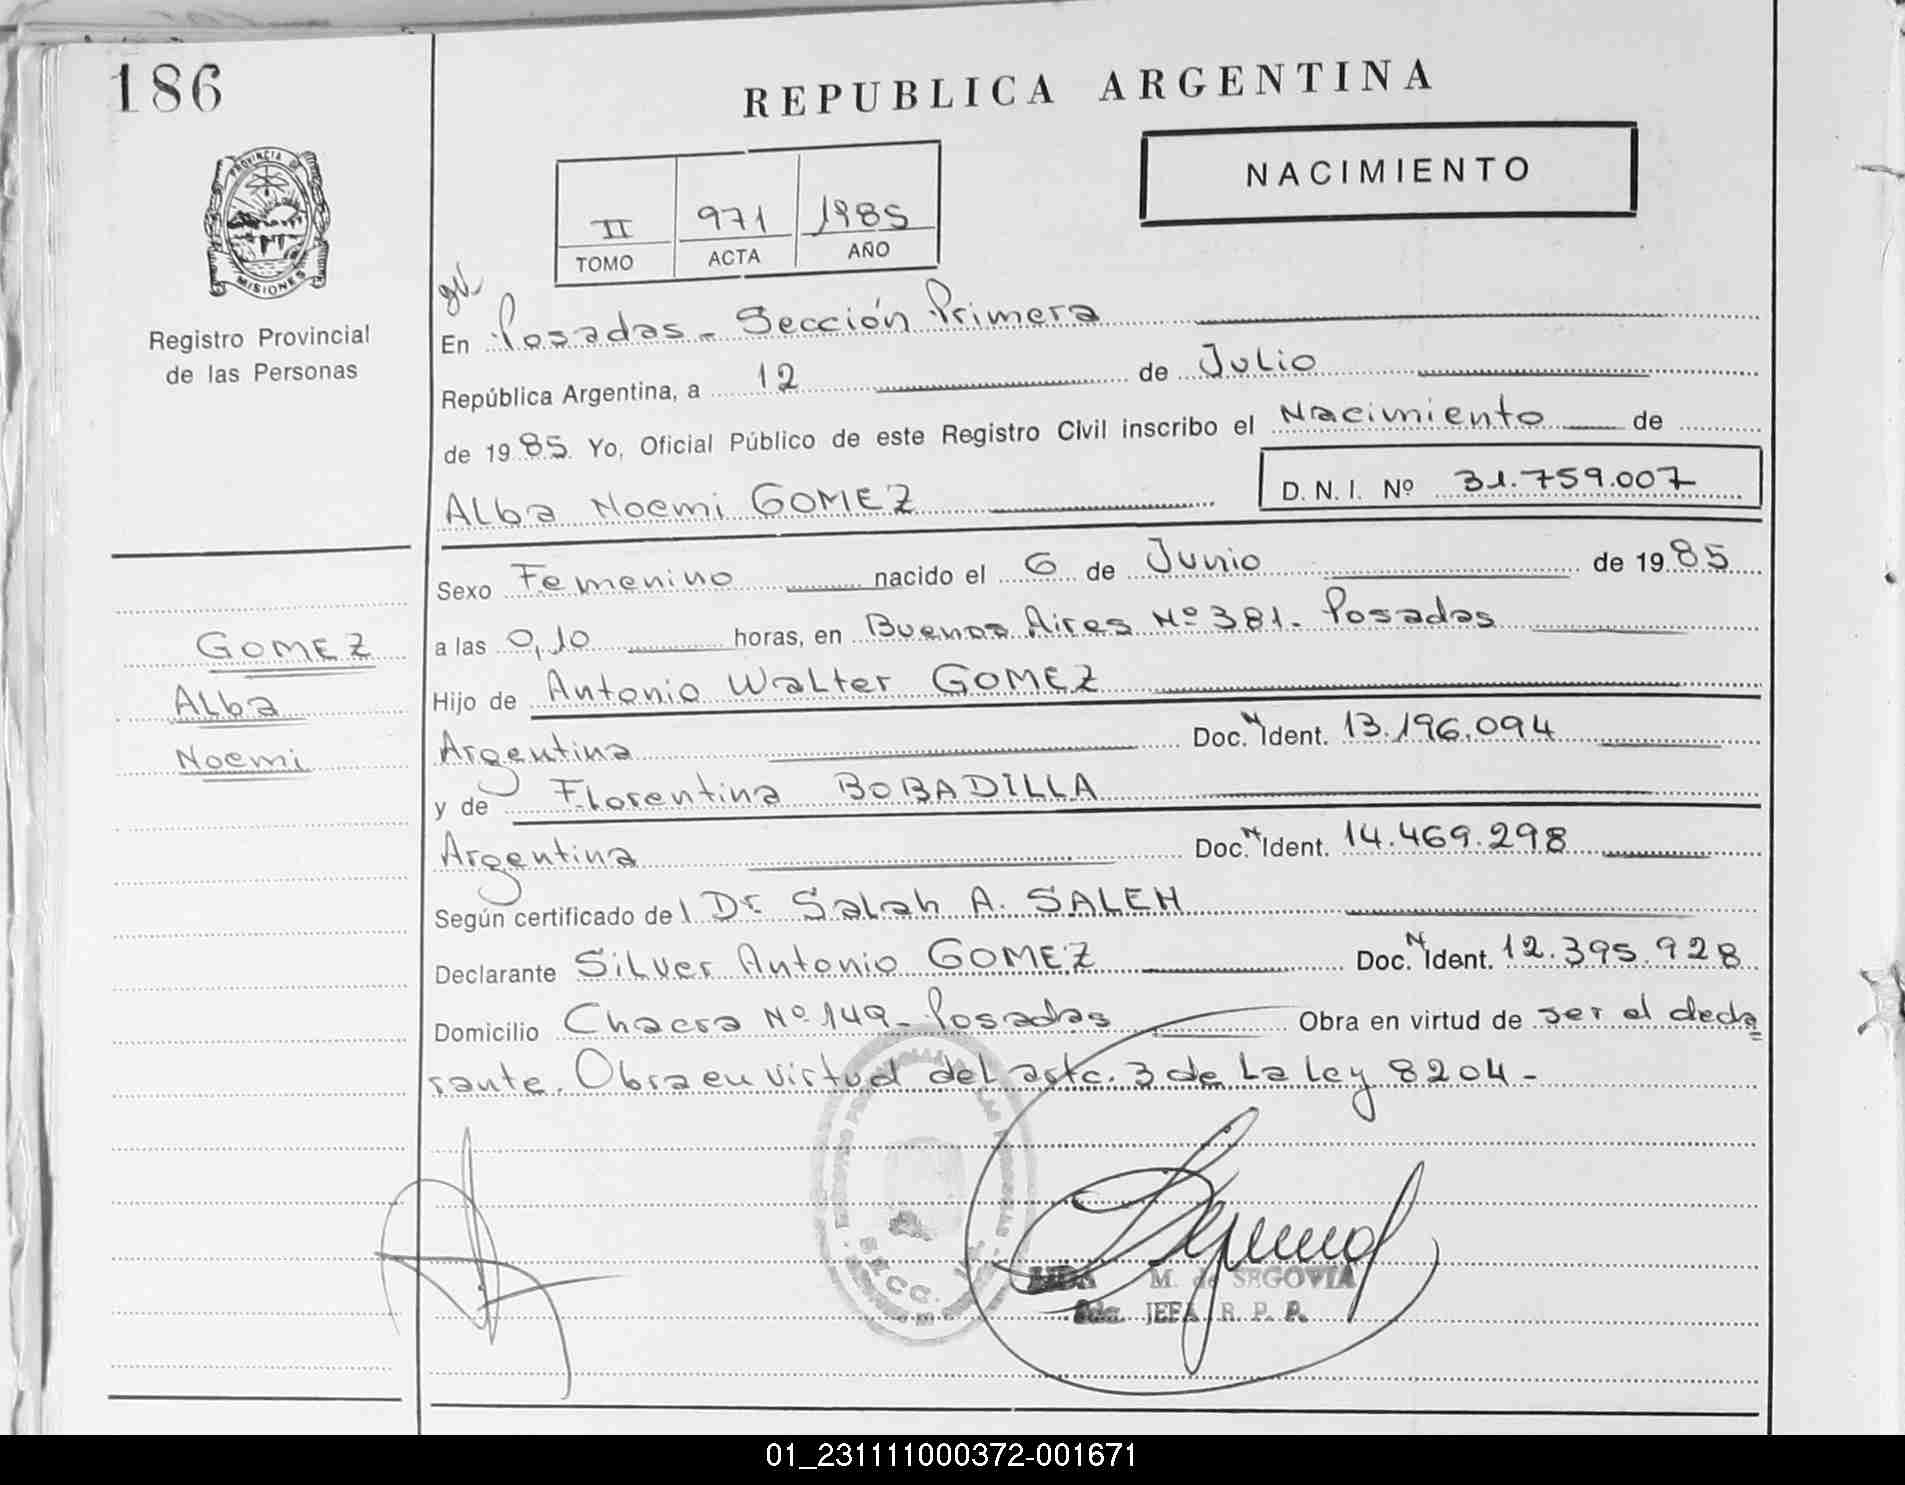 186
REPUBLICA ARGENTINA
NACIMIENTO
PROVINCIA DE
MISIONES
II 971 1985
TOMO ACTA AÑO
Registro Provincial
de las Personas
En Posadas - Sección Primera
República Argentina, a 12 de Julio
de 1985 Yo, Oficial Público de este Registro Civil inscribo el Nacimiento de
Alba Noemi GOMEZ D. N. I. Nº 31.759.007
Sexo Femenino nacido el 6 de Junio de 1985
a las 0,10 horas, en Buenos Aires Nº 381 - Posadas
Hijo de Antonio Walter GOMEZ
Argentina Doc. N Ident. 13.196.094
y de Florentina BOBADILLA
Argentina Doc. N Ident. 14.469.298
Según certificado del Dr Salah A. SALEH
Declarante Silver Antonio GOMEZ Doc. N Ident. 12.395.928
Domicilio Chacra Nº 149 - Posadas Obra en virtud de ser el decla
rante. Obra en virtud del artc. 3 de La Ley 8204 -
GOMEZ
Alba
Noemi
SECC.
M. de SEGOVIA
JEFA R. P. P.
01_231111000372-001671